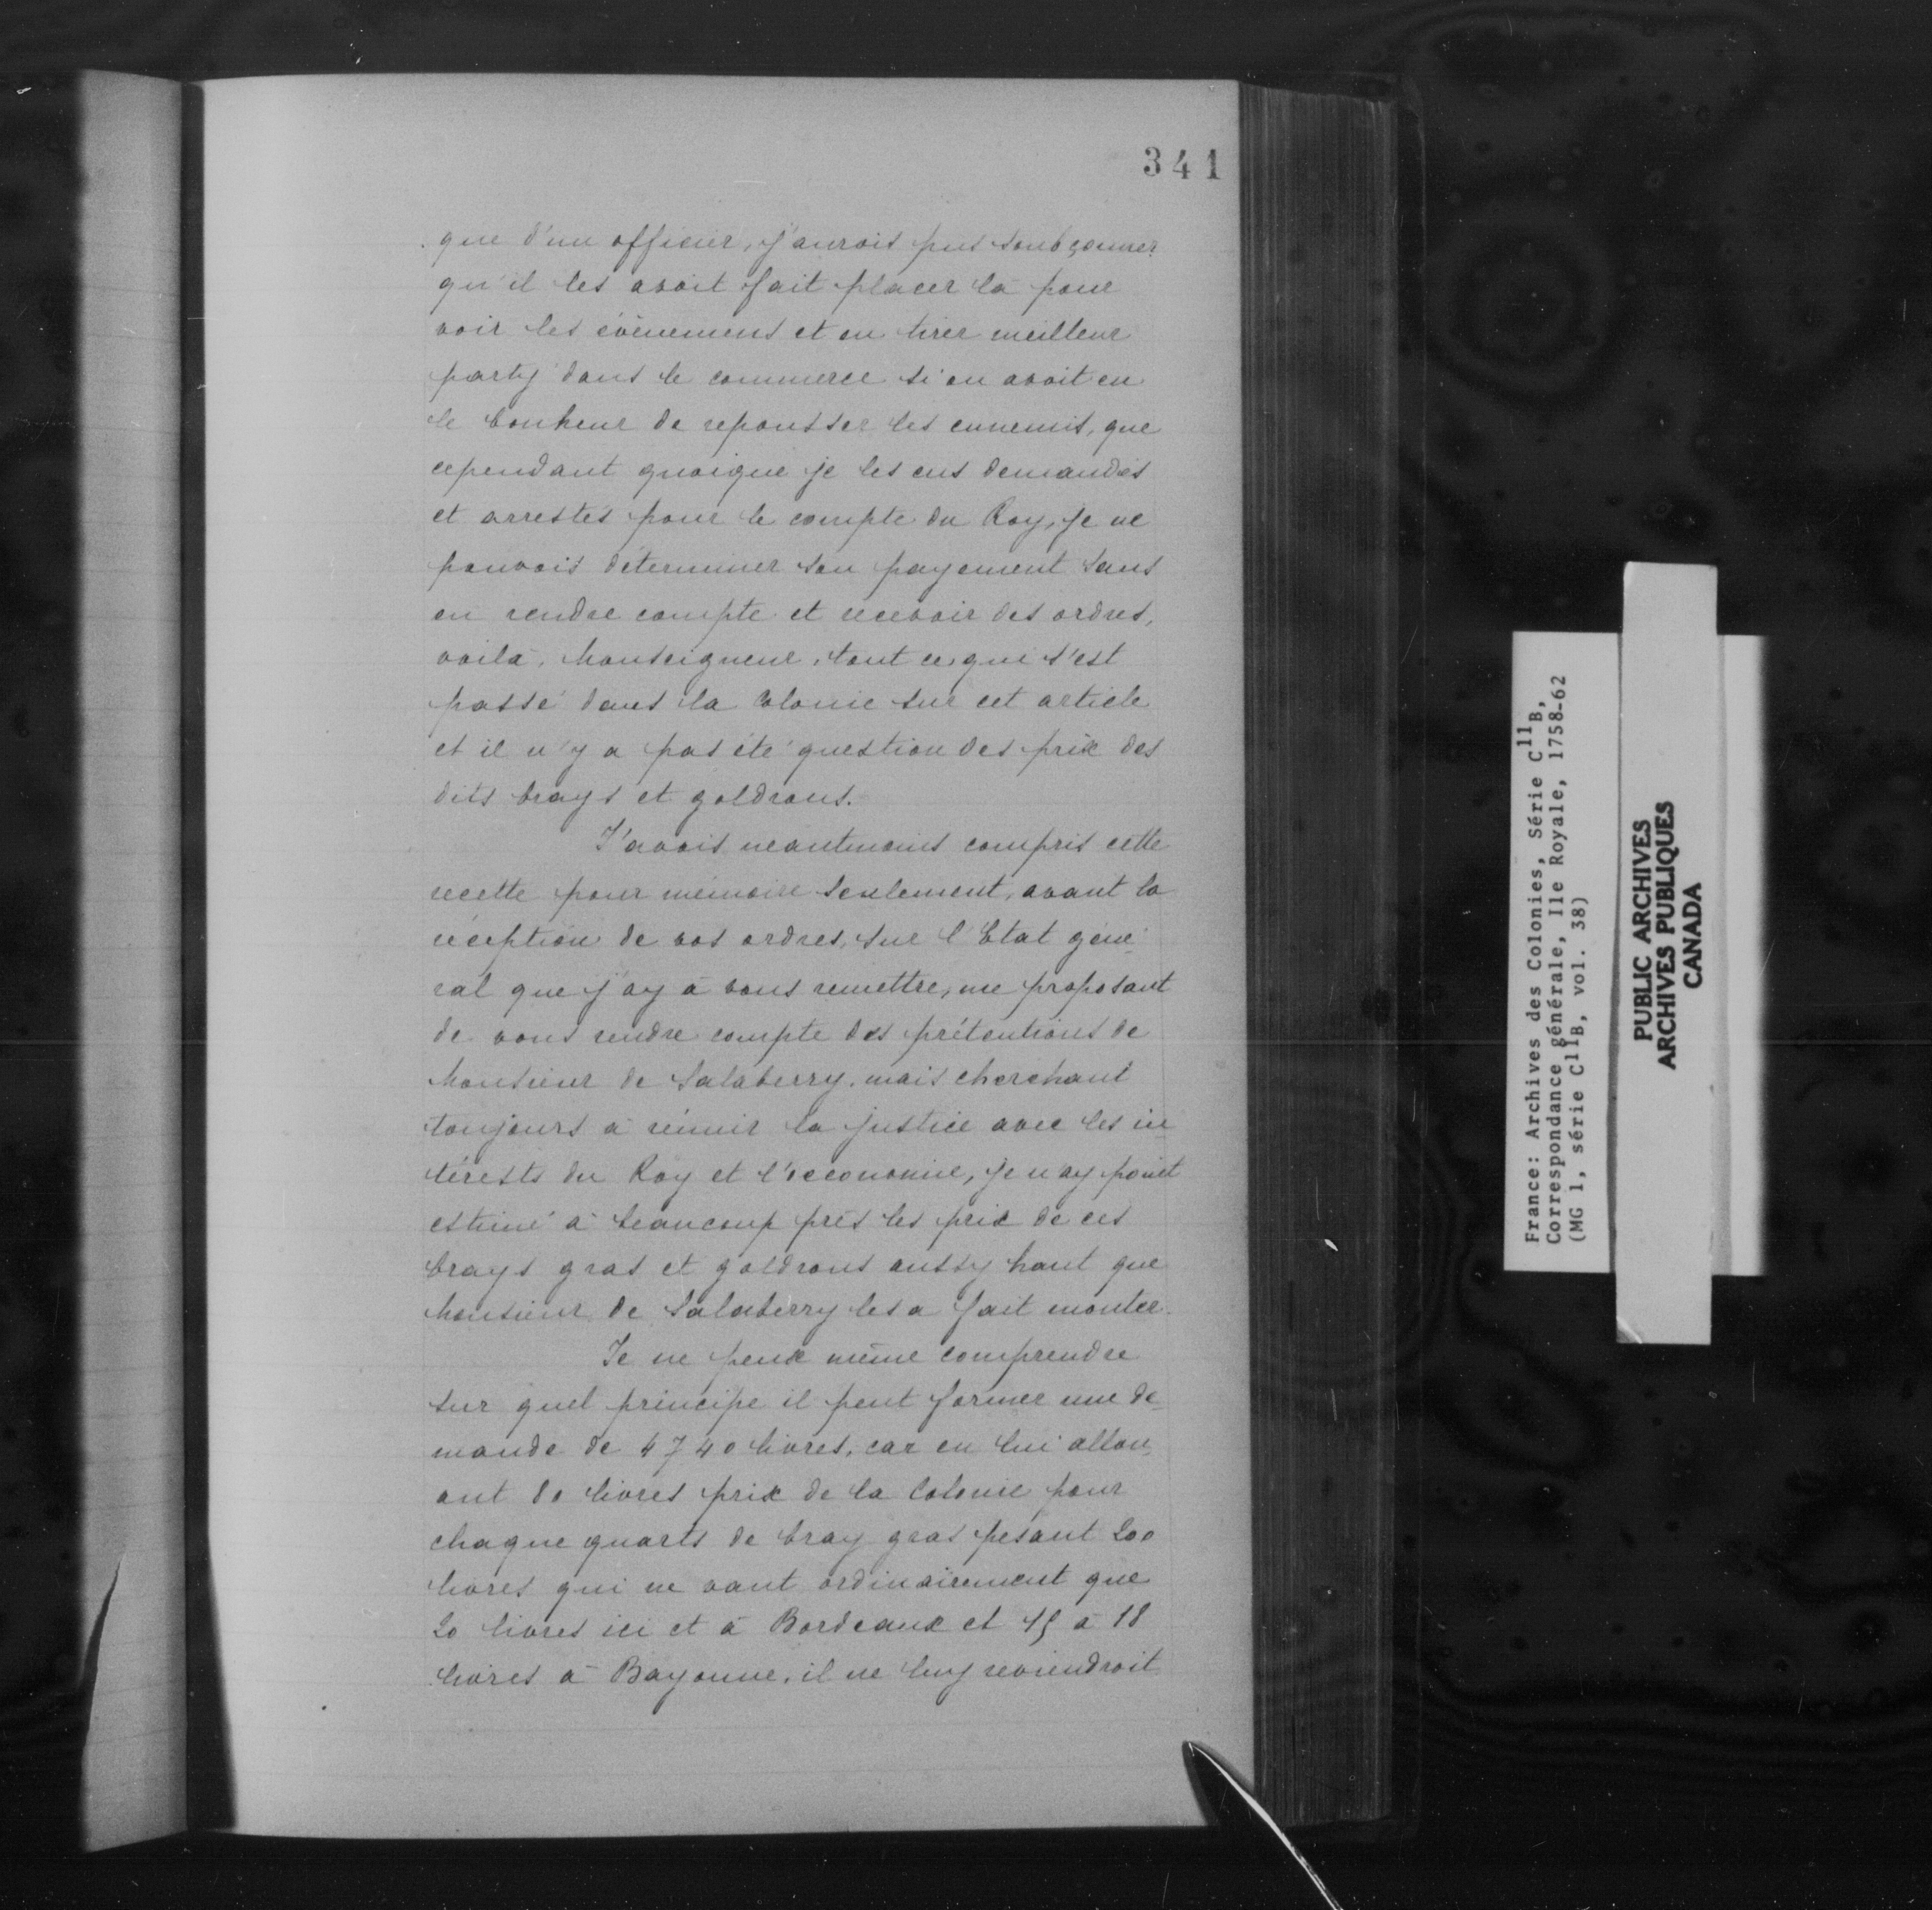 341
que d'un officier, j'aurois pus soubçonner
qu'il les avoit fait placer là pour
voir les évènemens et en tirer meilleur
party dans le commerce si on avoit eu
le bonheur de repousser les ennemis, que
cependant quoique je les eus demandés
et arrestés pour le compte du Roy, je ne
pouvois déterminer son payement sans
en rendre compte et recevoir des ordres,
voilà, Monseigneur, tout ce qui s'est
passé dans la Colonie sur cet article
et il n'y a pas été question des prix des
dits brays et goldrons.
J'avois neantmoins compris cette
recette pour mémoire seulement, avant la
réception de vos ordres, sur l'Etat géné-
ral que j'ay à vous remettre, me proposant
de vous rendre compte des prétentions de
Monsieur de Salaberry, mais cherchant
toujours à réunir la justice avec les in-
térests du Roy et l'oeconomie, je n'ay point
estimé à beaucoup près les prix de ces
brays gras et goldrons aussy haut que
Monsieur de Salaberry les a fait monter.
Je ne peux même comprendre
sur quel principe il peut former une de-
mande de 4740 livres, car en lui allou-
ant 80 livres prix de la Colonie pour
chaque quarts de bray gras pesant 200
livres qui ne vaut ordinairement que
20 livres ici et à Bordeaux et 15 à 18
livres à Bayonne, il ne luy reviendroit
France: Archives des Colonies, Série C11B,
Correspondance générale, Ile Royale, 1758-62
(MG 1, série C11B, vol. 38)
PUBLIC ARCHIVES
ARCHIVES PUBLIQUES
CANADA